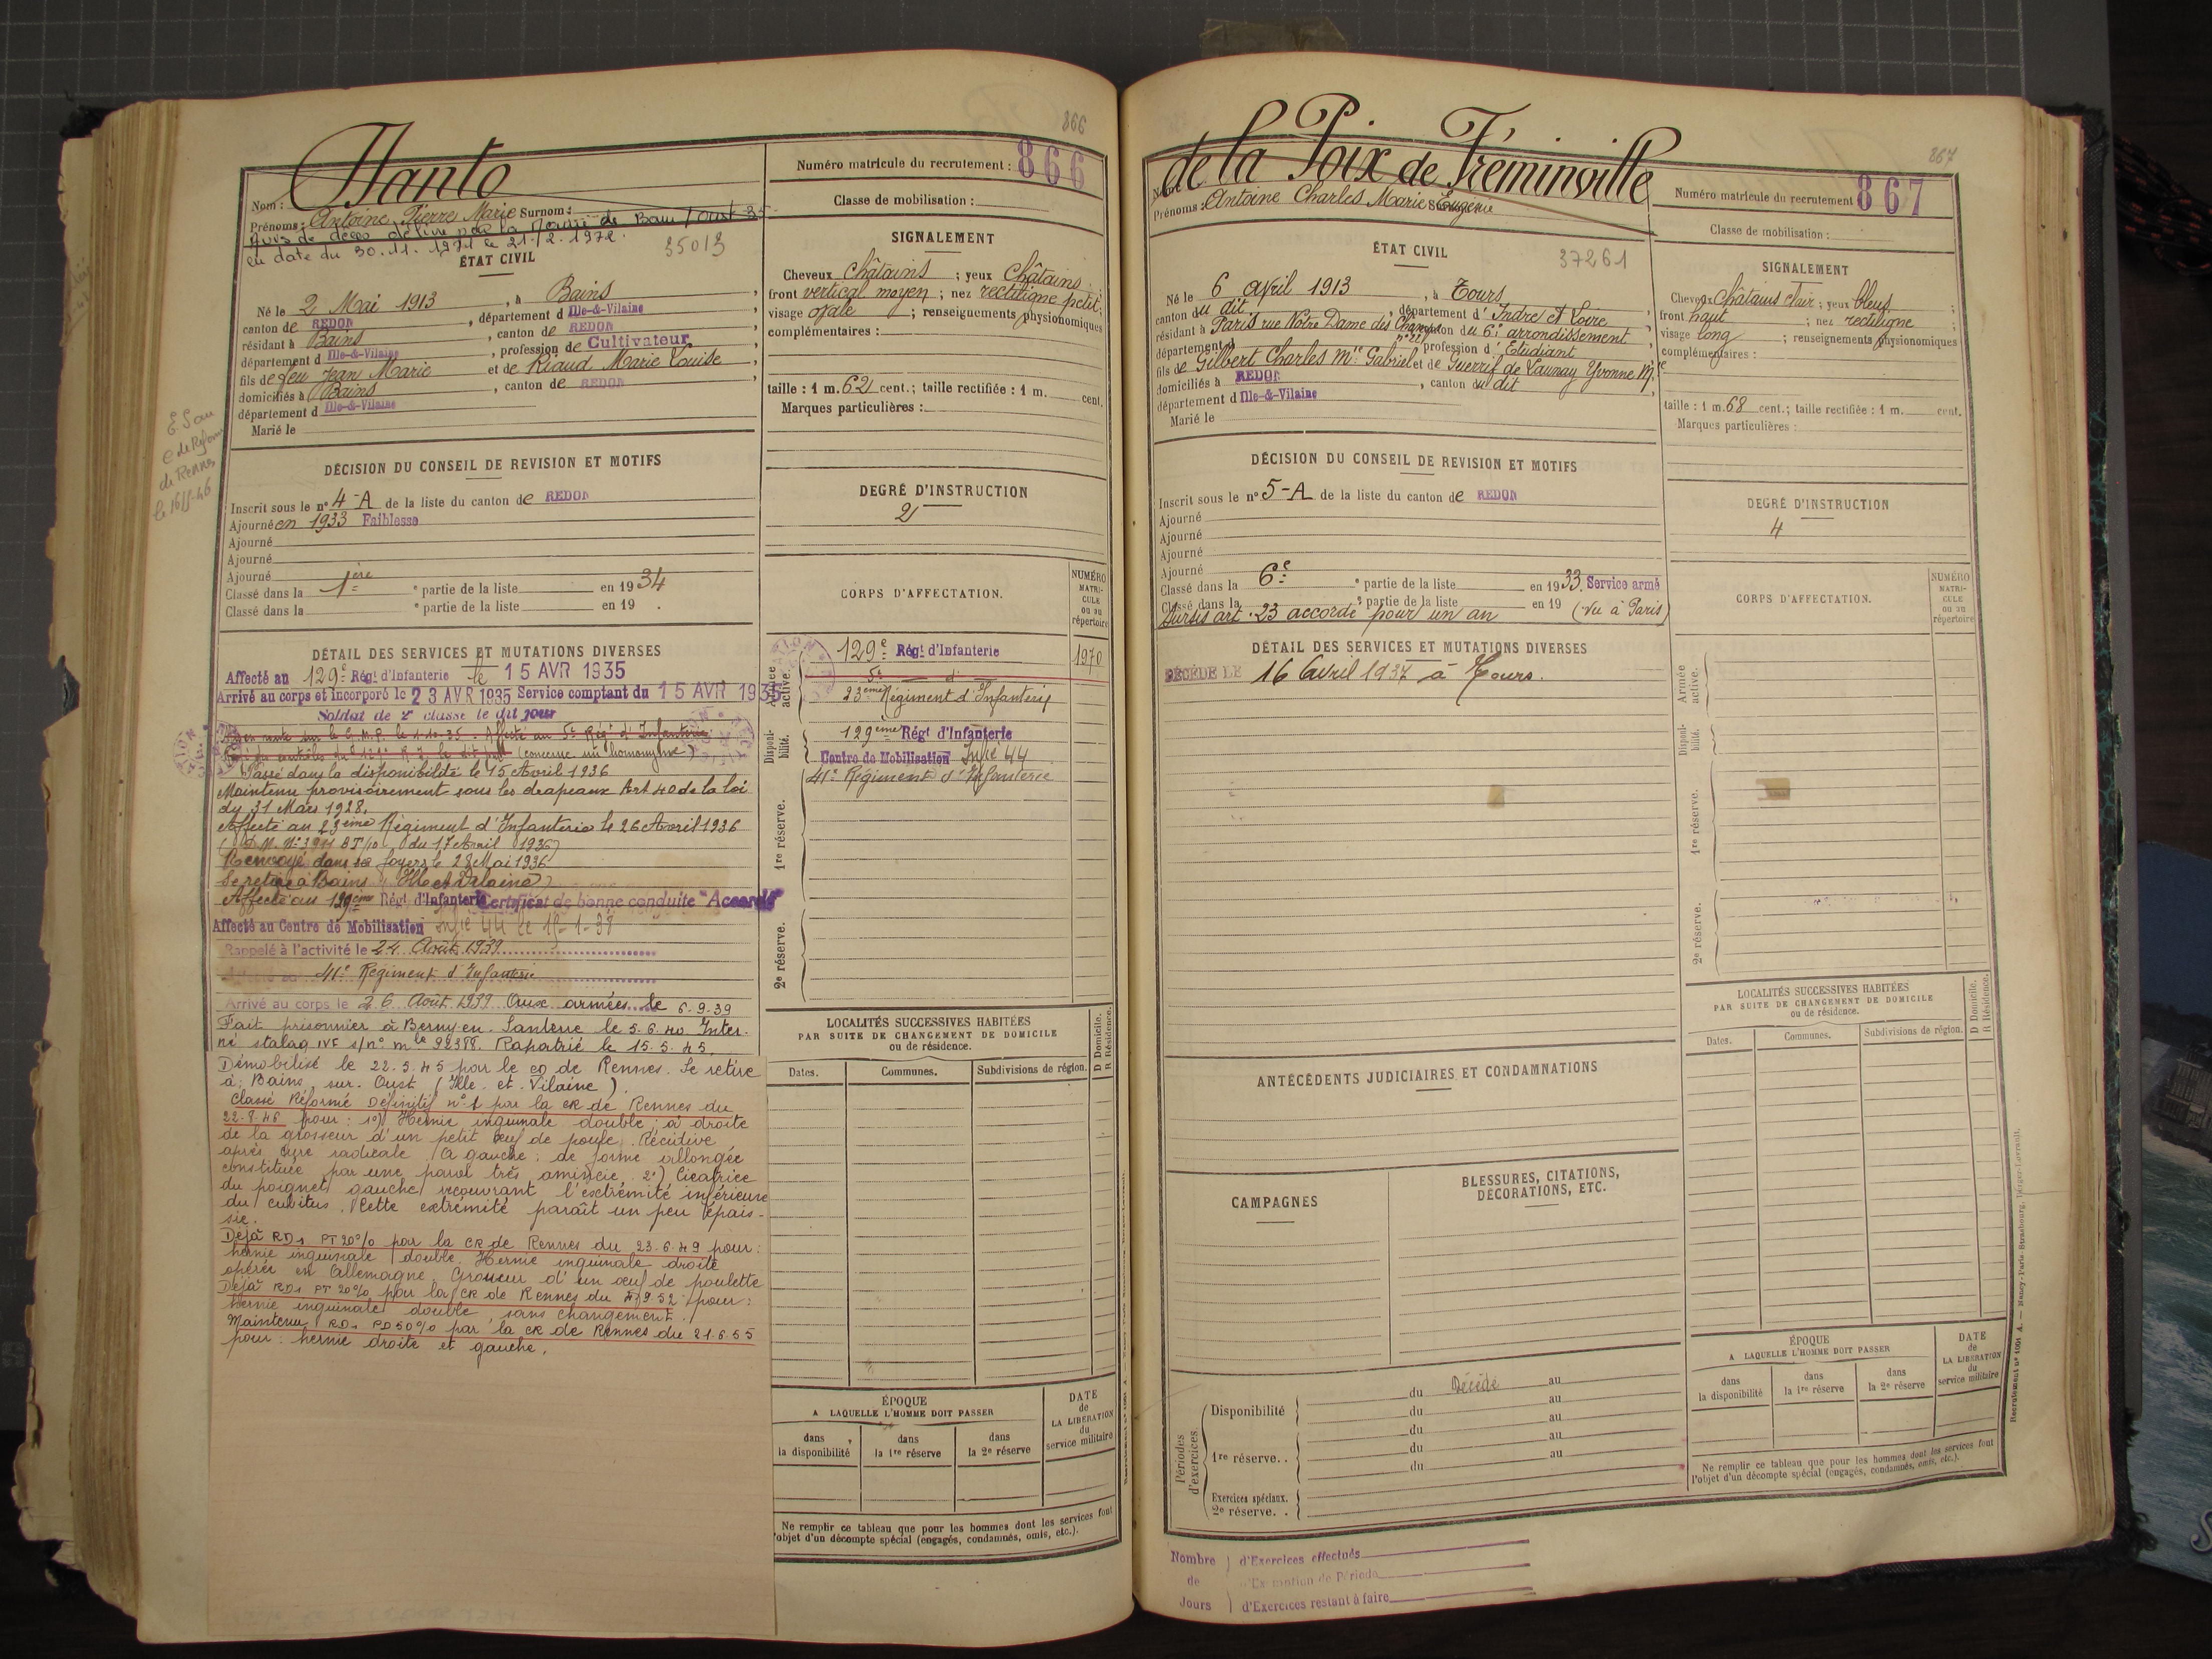 866
Hanto
Numéro matricule du recrutement : 866
Nom :
Prénoms : Antoine Pierre Marie Surnom :
Avis de décès délivré par la Mairie de Bains s/ Oust 35
en date du 30.11.1971 le 21.2.1972.
35013
Classe de mobilisation :
ÉTAT CIVIL
Né le 2 Mai 1913, à Bains,
canton de REDON, département d Ille-&-Vilaine
résidant à Bains, canton de REDON,
département d Ille-&-Vilaine, profession de Cultivateur,
fils de feu Jean Marie et de Riaud Marie Louise,
domiciliés à Bains, canton de REDON,
département d Ille-&-Vilaine
Marié le
SIGNALEMENT
Cheveux Châtains ; yeux Châtains ;
front vertical moyen ; nez rectiligne petit ;
visage ovale ; renseignements physionomiques
complémentaires :
taille : 1 m. 62 cent. ; taille rectifiée : 1 m. cent.
Marques particulières :
E. S au
de Réforme
de Rennes
DÉCISION DU CONSEIL DE REVISION ET MOTIFS
Inscrit sous le n° 4-A de la liste du canton de REDON
Ajourné en 1933 Faiblesse
Ajourné
Ajourné
Ajourné
Classé dans la 1ère partie de la liste en 1934
Classé dans la e partie de la liste en 19 .
DEGRÉ D'INSTRUCTION
2
CORPS D'AFFECTATION.
NUMÉRO MATRICULE ou au répertoire
Armée active.
129e Régt d'Infanterie 1970
5e d°
23eme Régiment d'Infanterie
Disponibilité.
129eme Régt d'Infanterie
Centre de Mobilisation Infie 44
41e Régiment d'Infanterie
1re réserve.
2e réserve.
DÉTAIL DES SERVICES ET MUTATIONS DIVERSES
Affecté au 129e Régt d'Infanterie le 15 AVR 1935
Arrivé au corps et incorporé le 23 AVR 1935 Service comptant du 15 AVR 1935
Soldat de 2e classe le dit jour
Affecté au 5e Régt d'Infanterie
(concerne un homonyme)
Passé dans la disponibilité le 15 Avril 1936
Maintenu provisoirement sous les drapeaux Art 40 de la loi
du 31 Mars 1928.
Affecté au 23ème Régiment d'Infanterie le 26 Avril 1936
du 17 Avril 1936)
Renvoyé dans ses foyers le 28 Mai 1936
Se retire à Bains (Ille et Vilaine)
Affecté au 129ème Régt d'Infanterie Certificat de bonne conduite "Accordé"
Affecté au Centre de Mobilisation Infie 44 le 15-1-38
Rappelé à l'activité le 24 Août 1939
Affecté au 41e Régiment d'Infanterie
Arrivé au corps le 26 Août 1939 Aux armées le 6-9-39
Fait prisonnier à Berny-en-Santerre le 5.6.40 Inter-
né stalag IVF s/n° mle 92388. Rapatrié le 15.5.45.
Démobilisé le 22.5.45 par le CD de Rennes. Se retire
à Bains-sur-Oust (Ille-et-Vilaine).
Classé Réformé Définitif n°1 par la CR de Rennes du
22.8.46 pour : 1°) Hernie inguinale double ; à droite
de la grosseur d'un petit œuf de poule. Récidive
après cure radicale. A gauche : de forme allongée
constituée par une paroi très amincie. 2°) Cicatrice
du poignet gauche recouvrant l'extrémité inférieure
du cubitus. Cette extrémité paraît un peu épais-
sie.
Déjà RD1 PT 20% par la CR de Rennes du 23.6.49 pour :
hernie inguinale double. Hernie inguinale droite
opérée en Allemagne. Grosseur d'un œuf de poulette
Déjà RD1 PT 20% par la CR de Rennes du 9.52 pour :
Hernie inguinale double, sans changement.
Maintenu RD1 PD 50% par la CR de Rennes du 21.6.55
pour : hernie droite et gauche.
LOCALITÉS SUCCESSIVES HABITÉES
PAR SUITE DE CHANGEMENT DE DOMICILE
ou de résidence.
D Domicile.
R Résidence.
Dates. Communes. Subdivisions de région.
ÉPOQUE
A LAQUELLE L'HOMME DOIT PASSER
dans la disponibilité
dans la 1re réserve
dans la 2e réserve
DATE de LA LIBÉRATION du service militaire
Ne remplir ce tableau que pour les hommes dont les services font
l'objet d'un décompte spécial (engagés, condamnés, omis, etc.).
867
de la Poix de Fréminville
Numéro matricule du recrutement 867
Nom :
Prénoms : Antoine Charles Marie Eugène
Surnom :
Classe de mobilisation :
ÉTAT CIVIL
37261
Né le 6 avril 1913, à Tours,
canton du dit, département d'Indre et Loire
résidant à Paris rue Notre Dame des Champs canton du 6e arrondissement,
département d n° 21, profession d'Etudiant,
fils de Gilbert Charles Mie Gabriel et de Guerrif de Launay Yvonne Mie,
domiciliés à REDON, canton du dit,
département d Ille-&-Vilaine
Marié le
SIGNALEMENT
Cheveux châtains clair ; yeux bleus ;
front haut ; nez rectiligne ;
visage long ; renseignements physionomiques
complémentaires :
taille : 1 m. 68 cent. ; taille rectifiée : 1 m. cent.
Marques particulières :
DÉCISION DU CONSEIL DE REVISION ET MOTIFS
Inscrit sous le n° 5-A de la liste du canton de REDON
Ajourné
Ajourné
Ajourné
Ajourné
Classé dans la 6e partie de la liste en 1933. Service armé
Classé dans la e partie de la liste en 19 (Vu à Paris)
Sursis art. 23 accordé pour un an
DEGRÉ D'INSTRUCTION
4
CORPS D'AFFECTATION.
NUMÉRO MATRICULE ou au répertoire
Armée active.
Disponibilité.
1re réserve.
2e réserve.
DÉTAIL DES SERVICES ET MUTATIONS DIVERSES
DÉCÉDÉ LE 16 Avril 1937 à Tours.
LOCALITÉS SUCCESSIVES HABITÉES
PAR SUITE DE CHANGEMENT DE DOMICILE
ou de résidence.
D Domicile.
R Résidence.
Dates. Communes. Subdivisions de région.
ANTÉCÉDENTS JUDICIAIRES ET CONDAMNATIONS
CAMPAGNES
BLESSURES, CITATIONS,
DÉCORATIONS, ETC.
Périodes d'exercices.
Disponibilité
du Décédé au
du au
du au
1re réserve. .
du au
du au
du
Exercices spéciaux.
2e réserve. .
ÉPOQUE
A LAQUELLE L'HOMME DOIT PASSER
dans la disponibilité
dans la 1re réserve
dans la 2e réserve
DATE de LA LIBÉRATION du service militaire
Ne remplir ce tableau que pour les hommes dont les services font
l'objet d'un décompte spécial (engagés, condamnés, omis, etc.).
Nombre de Jours
d'Exercices effectués
d'Exemption de Période
d'Exercices restant à faire